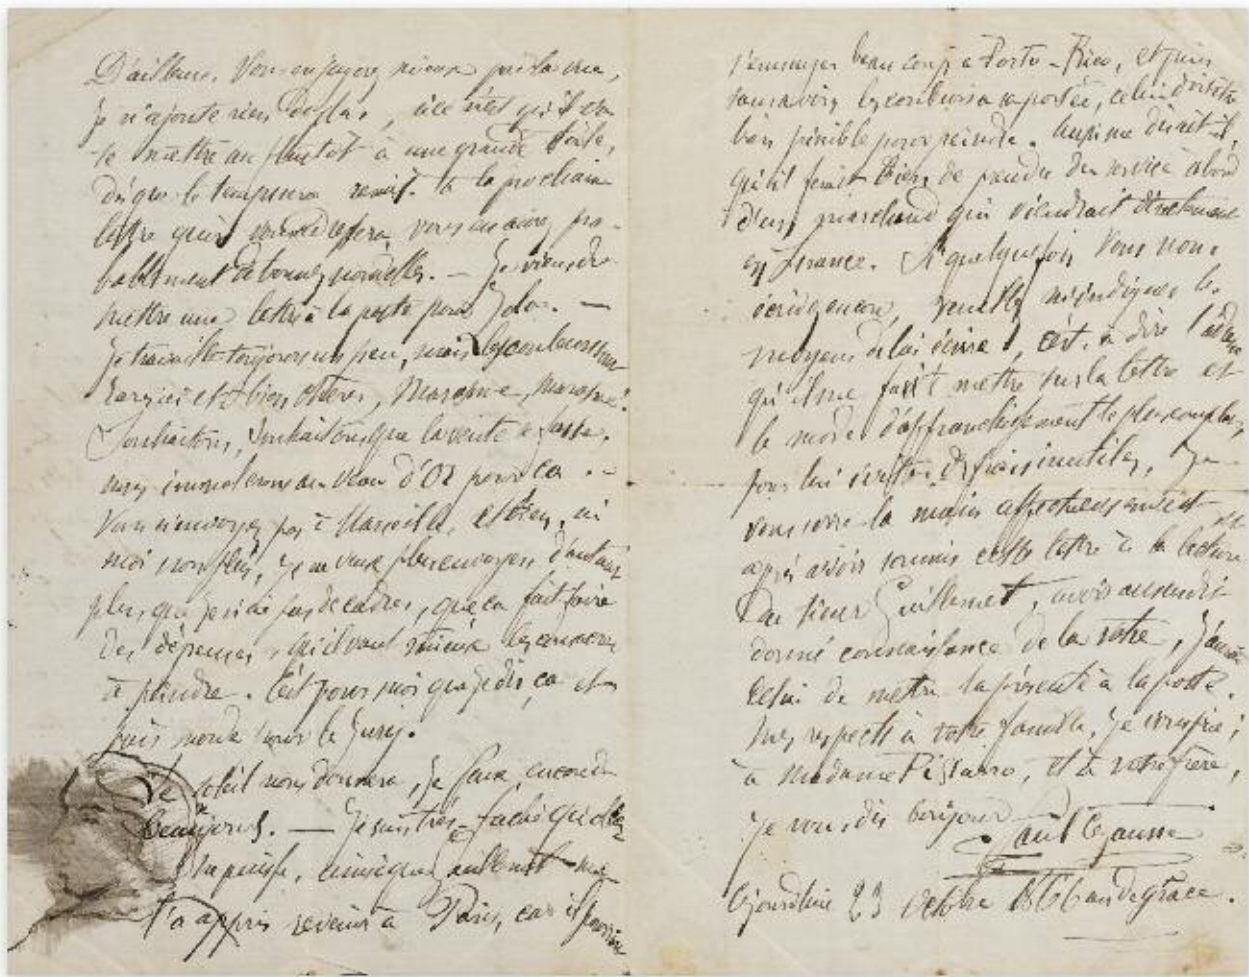 D'ailleurs. Vous en jugerez mieux par la vue,
je n'ajoute rien de plus, si ce n'est qu'il va
se mettre au plutôt à une grande toile,
dès que le temps sera remis. à la prochaine
lettre qui vous adressera vous en aurez pro-
bablement de bonnes nouvelles. — Je viens de
mettre une lettre à la poste pour Zola. —
Je travaille toujours un peu, mais les couleurs sont
rares ici et bien chères, Marasme, marasme!
Souhaitons, souhaitons que la vente se fasse.
nous immolerons au Veau d'Or pour ça. —
Vous n'envoyez pas à Marseille, eh bien, ni
moi non plus, je ne veux plus envoyer, d'autant
plus que je n'ai pas de cadres, que ça fait faire
des dépenses, qu'il vaut mieux les consacrer
à peindre. C'est pour moi que je dis, ça et
puis merde pour le Jury.
Le soleil nous donnera, je pense, encore de
beaux jours. — Je suis très-fâché qu'Oller
ne puisse, ainsi que Guillemet me
l'a appris revenir à Paris, car il pourrait
s'ennuyer beaucoup à Porto-Rico, et puis
sans avoir les couleurs à sa portée, cela doit être
bien pénible pour peindre. Aussi me disait-il,
qu'il ferait bien de prendre du service à bord
d'un marchand qui viendrait directement
en France. Si quelquefois vous nous
écrivez encore, veuillez m'indiquer les
moyens de lui écrire, c'est-à-dire l'adresse
qu'il me faut mettre sur la lettre et
le mode d'affranchissement le plus complet,
pour lui éviter des frais inutiles. Je
vous serre la main affectueusement et
après avoir soumis cette lettre à la lecture
du sieur Guillemet, avoir aussi
donné connaissance de la vôtre, j'aurai
celui de mettre la présente à la poste.
Mes respects à votre famille, je vous prie;
à Madame Pissarro, et à votre frère,
je vous dis bonjour
Paul Cezanne
Aujourdhui 23 Octobre an de grâce.